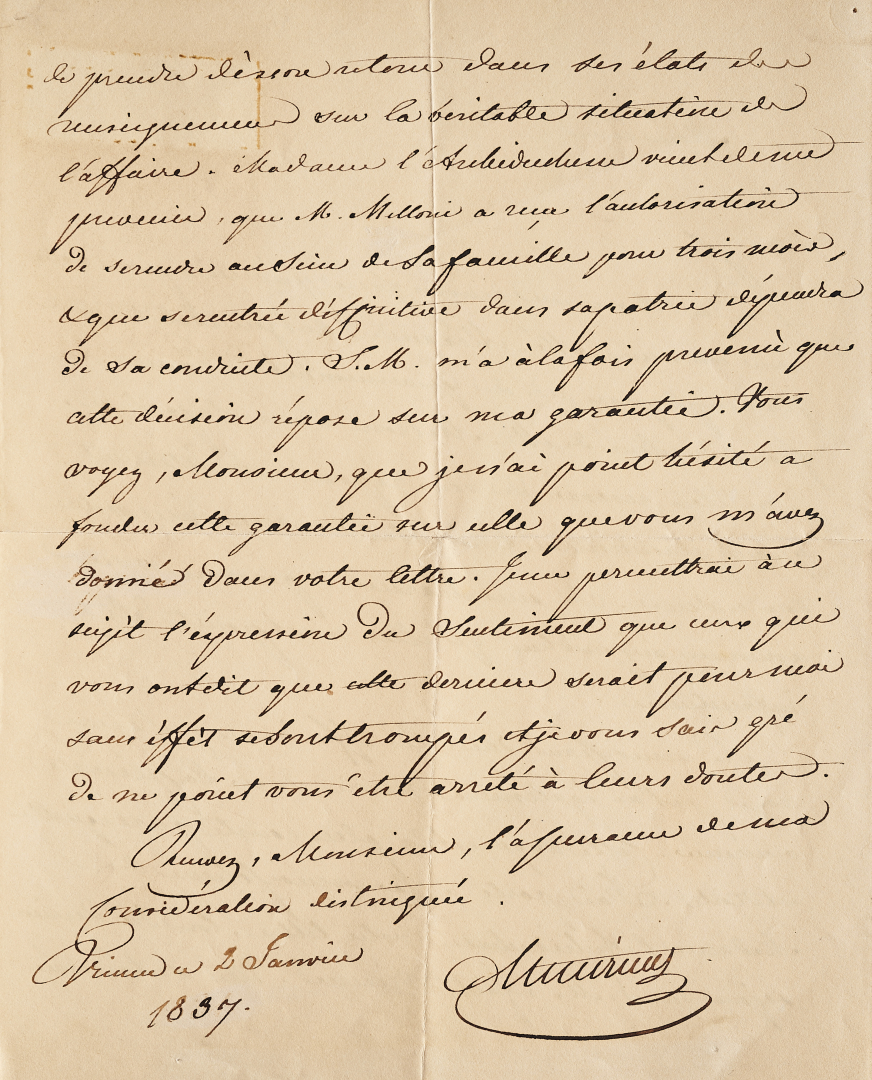 de prendre dèssore retour dans ses états des
renseignemens sur la véritable situation de
l'affaire. Madame l'Archiduchesse vient de me
prevenir, que M. Melloni a reçu l'autorisation
de se rendre au sein de sa famille pour trois mois,
& que sa rentrée définitive dans sa patrie dépendra
de sa conduite. S. M. m'a à la fois prevenu que
cette décision répose sur ma garantie. Vous
voyez, Monsieur, que je n'ai point hésité a
fonder cette garantie sur celle que vous m'avez
donnée dans votre lettre. Je me permettrai à ce
sujèt l'éxpression du Sentiment que ceux qui
vous ont dit que cette derniere serait pour moi
sans éffèt se sont trompés et je vous sais gré
de ne point vous être arrété à leurs doutes.
Recevez, Monsieur, l'assurance de ma
Considération distinguée.
Vienne ce 2 Janvier
1837.
Metternich